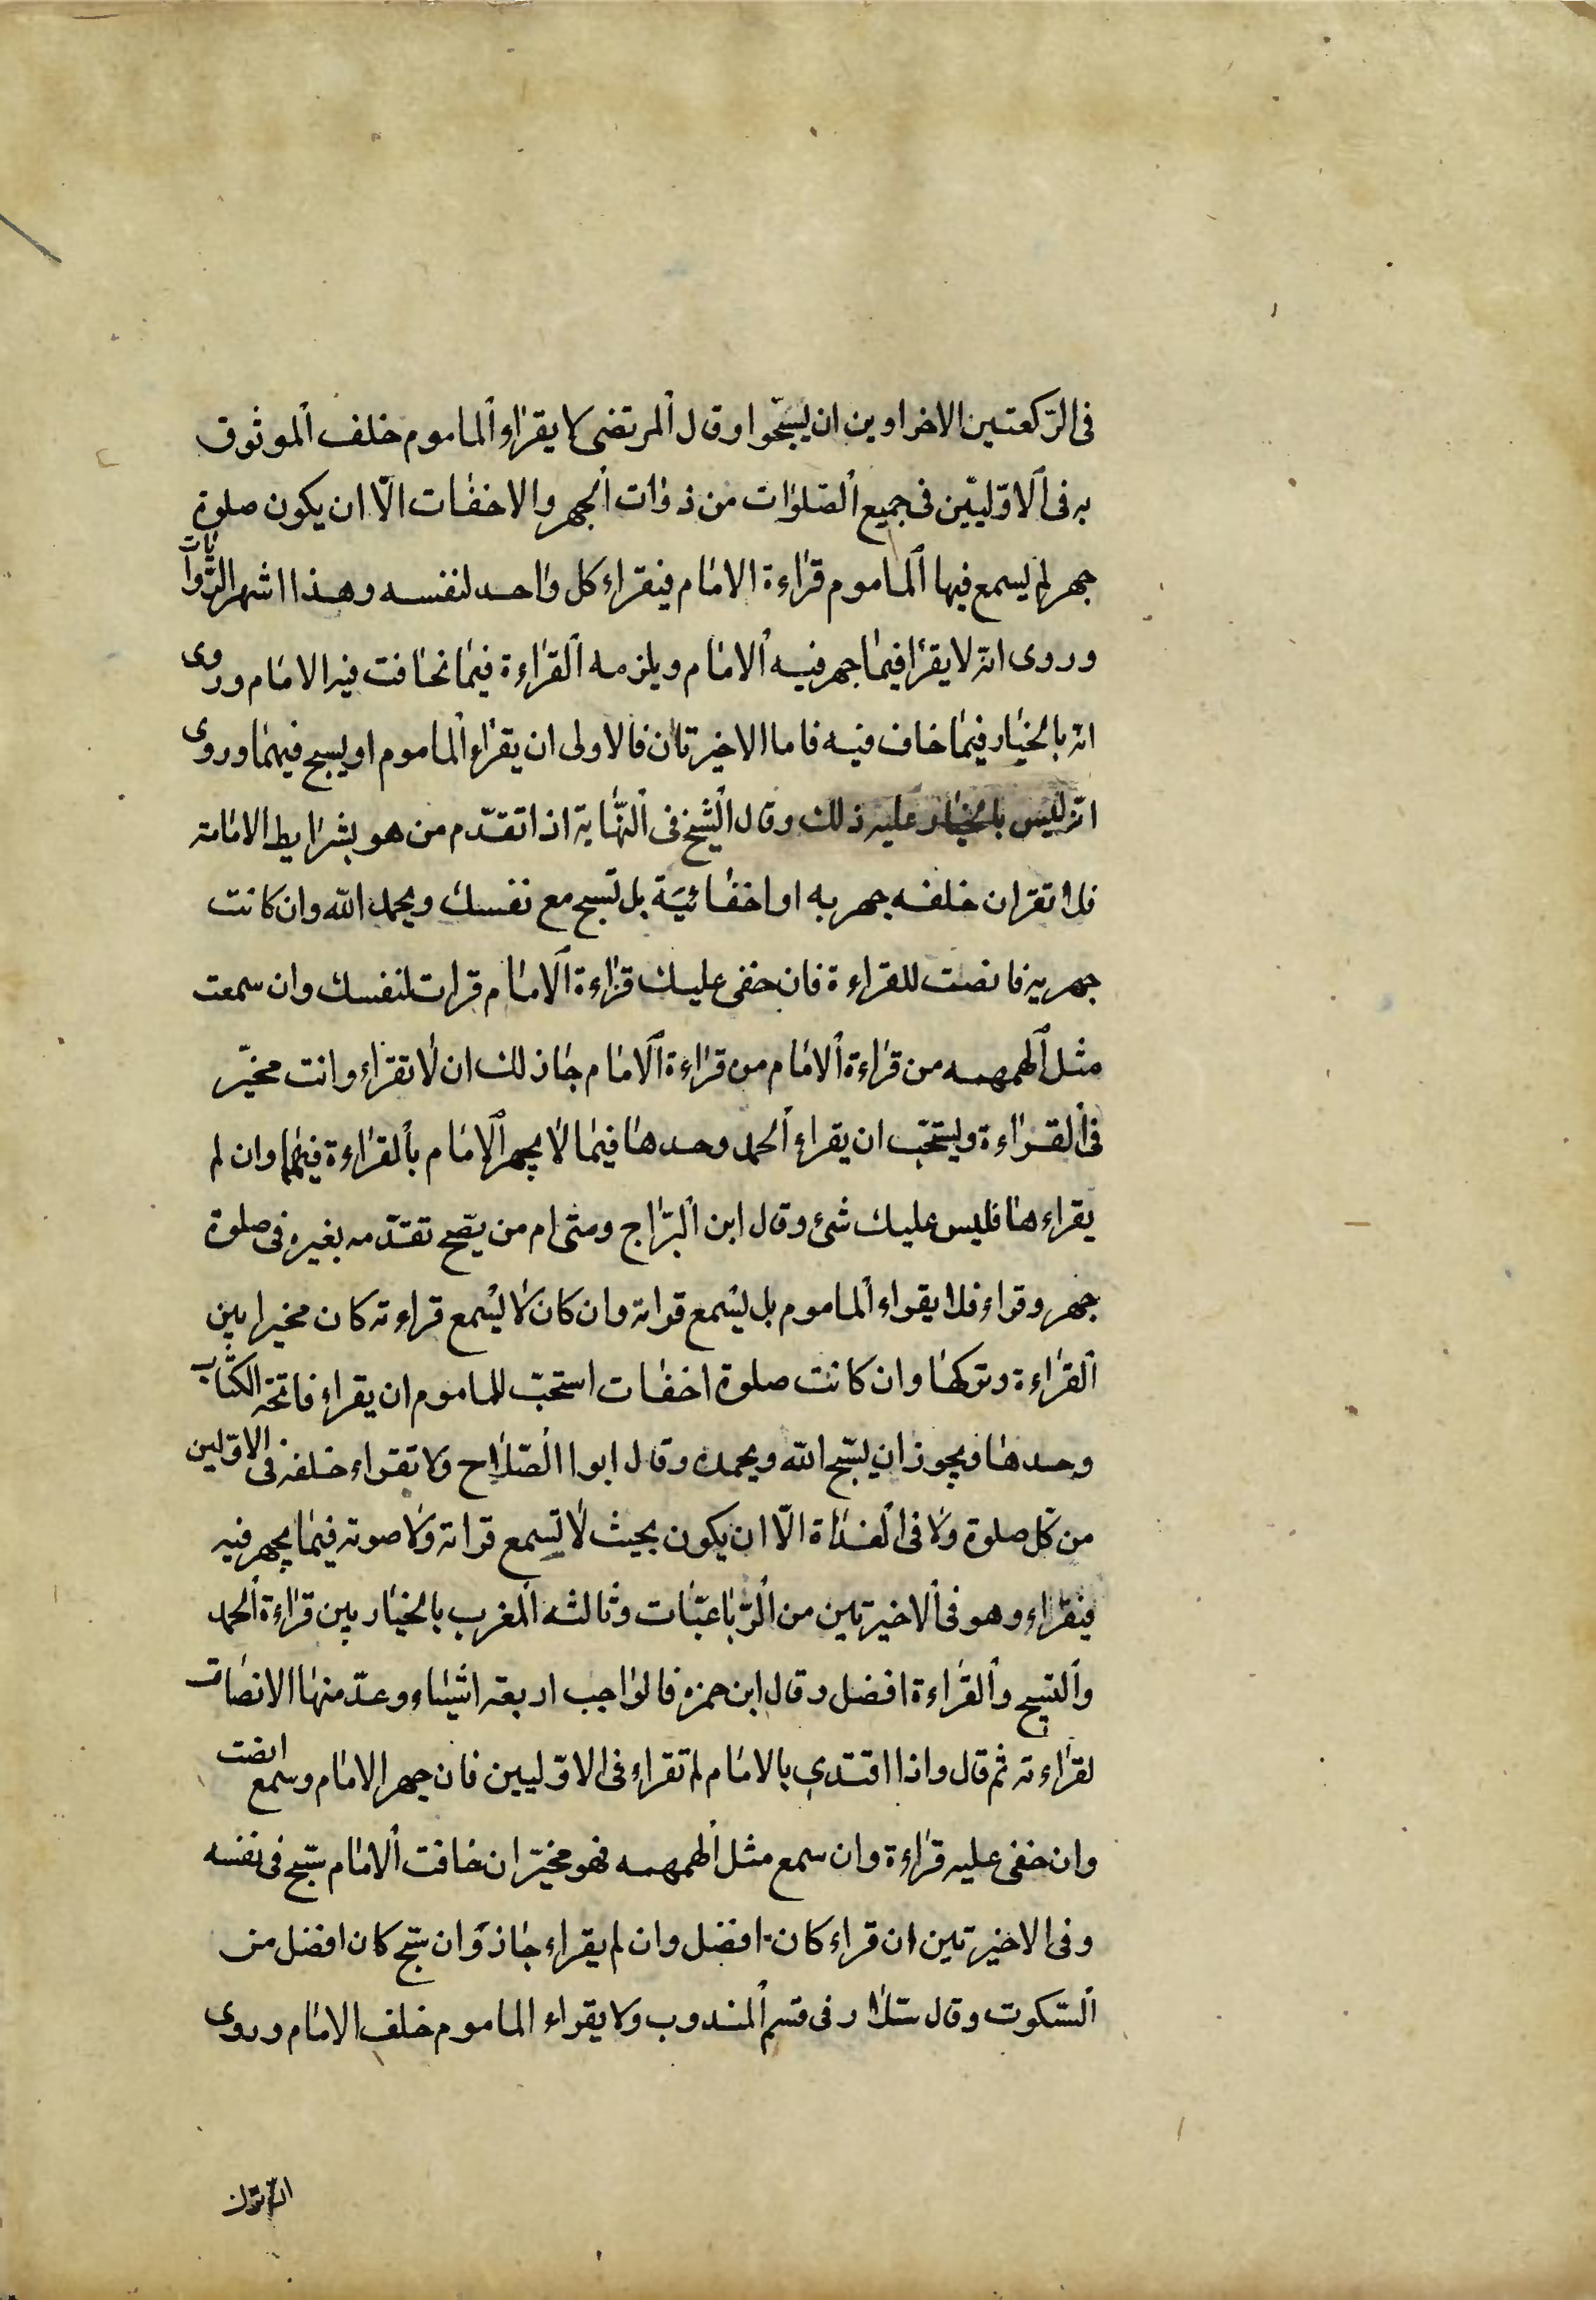 فى الرّكعتين الاخراوين ان يسبّحوا وقال المرتضى لا يقراء الماموم خلف الموثوق
به فى الاوّليّين فى جميع الصّلوات من ذوات الجهر والاخفات الّا ان يكون صلوة
جهر لم يسمع فيها الماموم قراءة الامام فيقراء كل واحد لنفسه وهذا اشهر الرّوايات
وروى انه لا يقرا فيما جهر فيه الامام ويلزمه القراءة فيما تخافت فيه الامام وروى
انه بالخيار فيما خاف فيه فاما الاخيرتان فالاولى ان يقراء الماموم او يسبح فيهما وروى
انه ليس بالخيار عليه ذلك وقال الشّيخ فى النّهاية اذا تقدّم من هو بشرايط الامامة
فلا تقران خلفه جهر به او اخفائيّة بل تسبح مع نفسك وبحمد الله وان كانت
جهريه فانصت للقراءة فان خفى عليك قراءة الامام قرات لنفسك وان سمعت
مثل الهمهمه من قراءة الامام من قراءة الامام جاز لك ان لا تقراء وانت مخيّر
فى القراءة ويستحبّ ان يقراء الحمد وحدها فيما لا يجهر الامام بالقراءة فيها وان لم
يقراءها فليس عليك شئ وقال ابن البرّاج ومتى ام من يصّح تقدّمه بغيره فى صلوة
جهر وقراء فلا يقراء الماموم بل يسمع قراته وان كان لا يسمع قراءته كان مخيرا بين
القراءة وتركها وان كانت صلوة اخفات استحبّ للماموم ان يقراء فاتحة الكتاب
وحدها ويجوز ان يسبّح الله ويحمده وقال ابوا الصّلاح ولا تقراء خلفه فى الاوّلين
من كل صلوة ولا فى الغداة الّا ان يكون بحيث لا تسمع قراته ولا صوته فيما يجهر فيه
فيقراء وهو فى الاخيرتين من الرّباعيّات وثالثه المغرب بالخيار بين قراءة الحمد
والتسبيح والقراءة افضل وقال ابن حمزه فالواجب اربعة اشياء وعدّ منها الانصات
لقراءته ثم قال واذا اقتدى بالامام لم تقراء فى الاوّليين فان جهر الامام وسمع انصت
وان خفى عليه قراءة وان سمع مثل الهمهمه فهو مخيّر ان خافت الامام سبّح فى نفسه
وفى الاخيرتين ان قراء كان افضل وان لم يقراء جاز وان سبّح كان افضل من
السّكوت وقال سلّار فى قسم المندوب ولا يقراء الماموم خلف الامام وروى